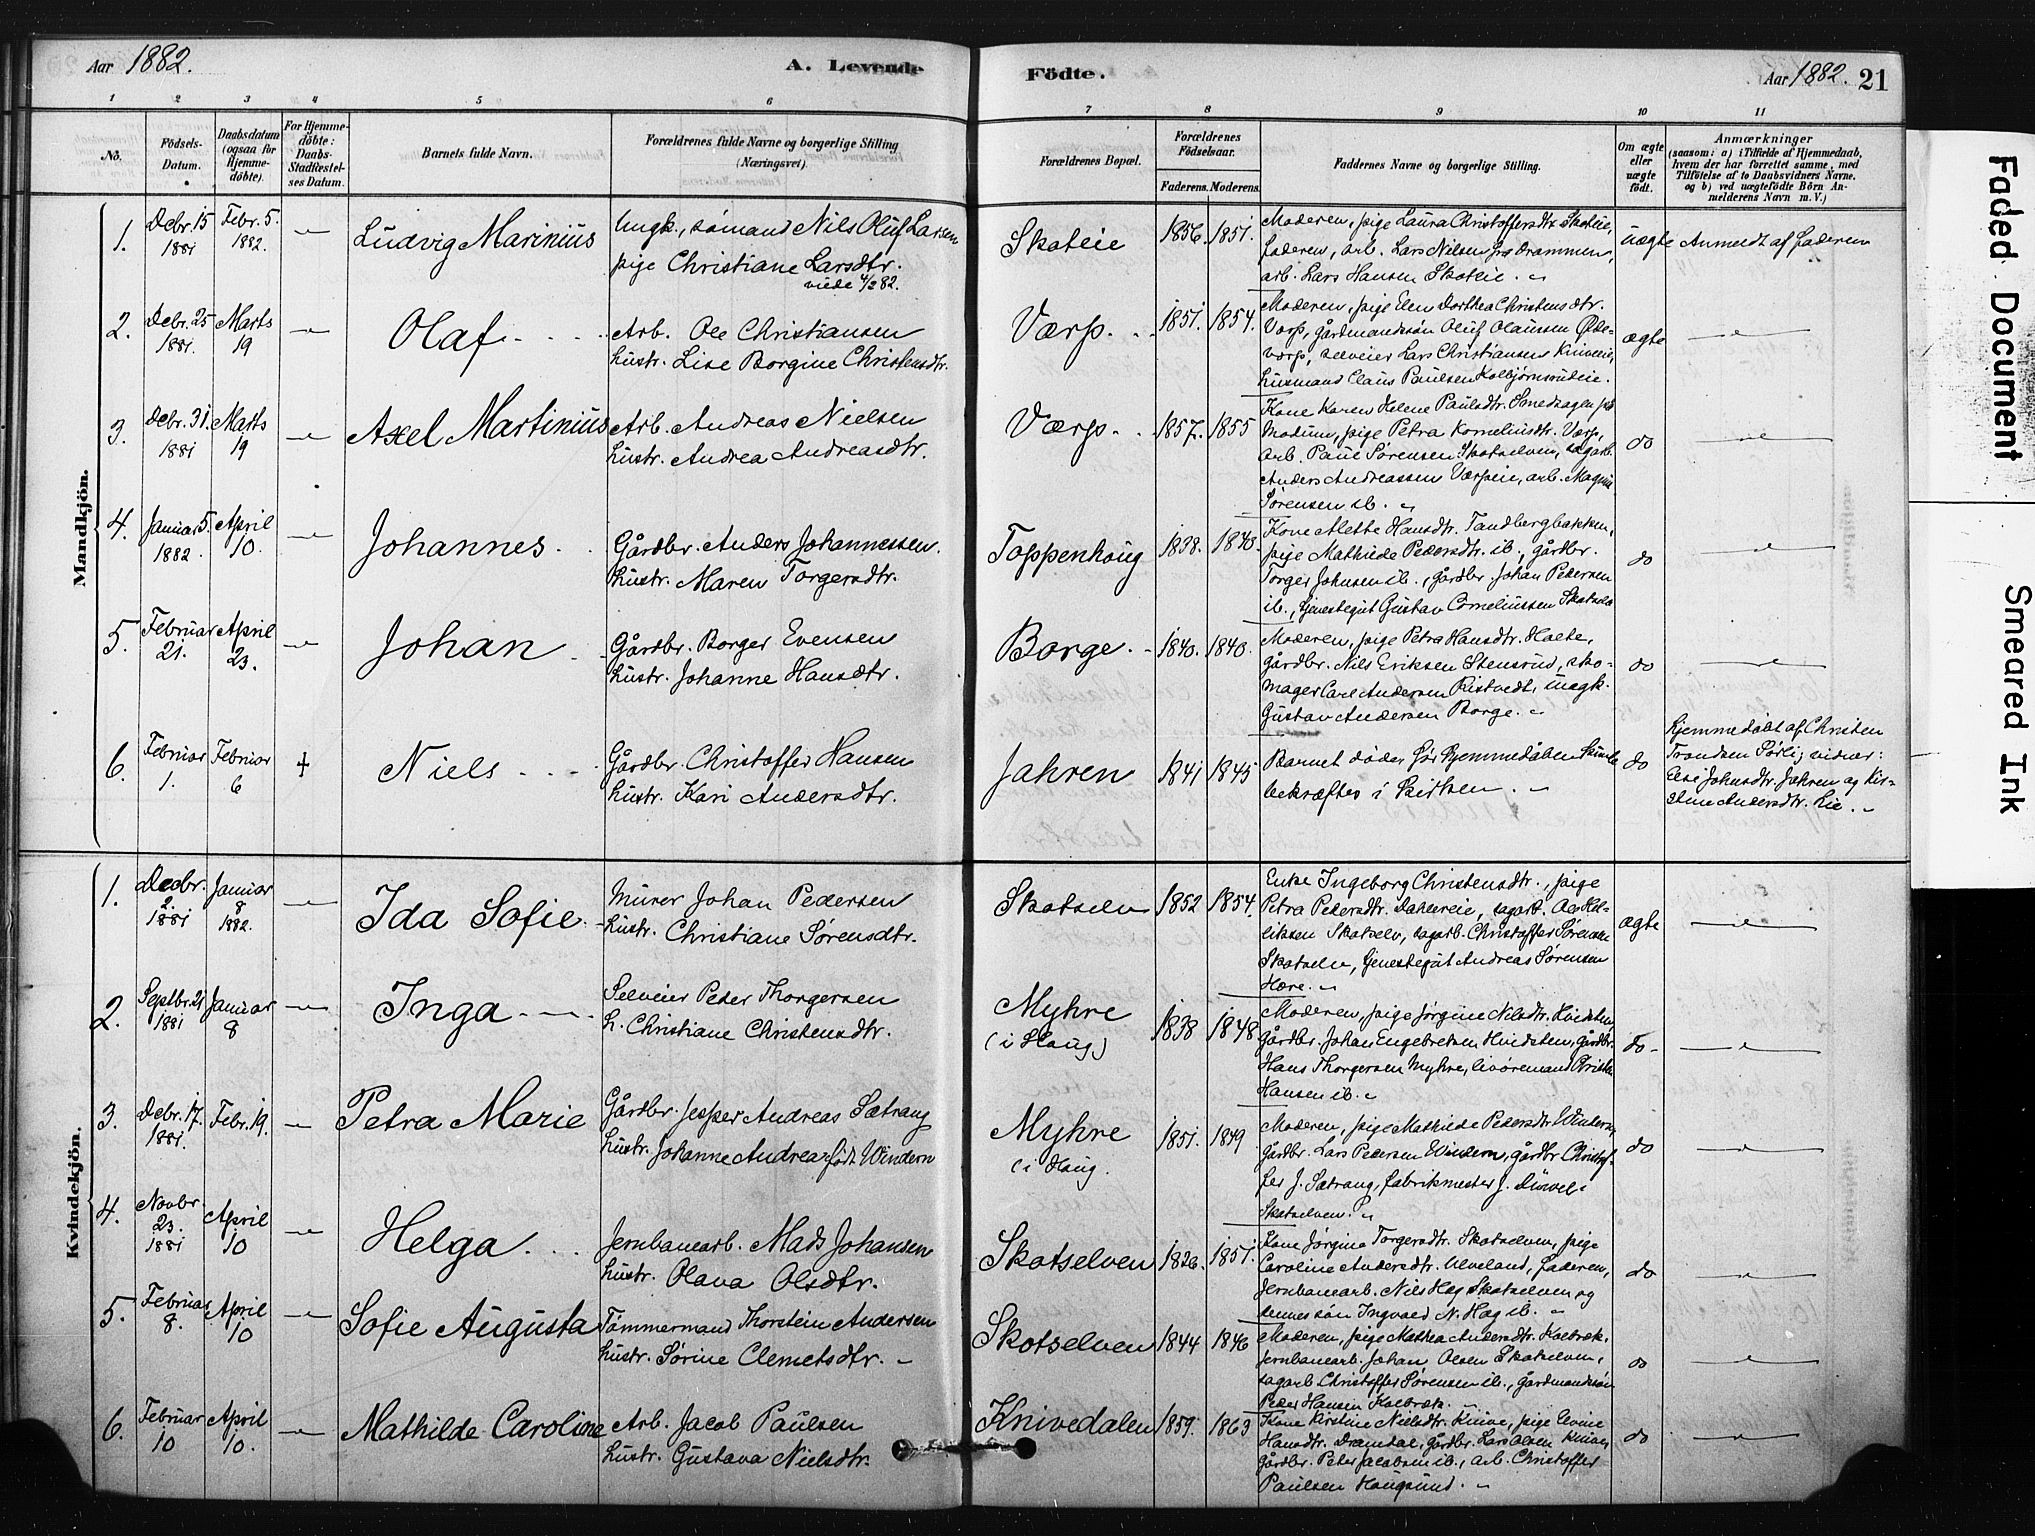 Aar 1882.
A. Levende
Födte.
Aar 1882. 21
1 2 3 4 5 6 7 8 9 10 11
No.
Födsels-Datum.
Daabsdatum (ogsaa for Hjemme-döbte).
For Hjemme-döbte: Daabs-Stadfestel-ses Datum.
Barnets fulde Navn.
Forældrenes fulde Navne og borgerlige Stilling (Næringsvei).
Forældrenes Bopæl.
Forældrenes Födselsaar.
Faderens. Moderens.
Faddernes Navne og borgerlige Stilling.
Om ægte eller uægte födt.
Anmærkninger
(saasom: a) i Tilfælde af Hjemmedaab,
hvem der har forrettet samme, med
Tilföielse af to Daabsvidners Navne.
og b) ved uægtefödte Börn An-
melderens Navn m. V.)
Mandkjön.
1. Debr. 15 1881 Febr. 5. 1882. Ludvig Marinius
Ungk., sømand Nils Oluf Larsen
pige Christiane Larsdtr.
viede 4/2 82.
Skotlie 1856. 1851.
Moderen, pige Laura Christoffersdtr. Skotlie,
faderen, arb. Lars Nilsen fra Drammen,
arb. Lars Hansen Skotlie.
uægte Anmeldt af faderen
2. Debr. 25 1881. Marts 19 Olaf
Arb. Ole Christiansen
hustr. Lise Borgine Christensdtr.
Værp. 1851. 1854.
Moderen, pige Elen Dorthea Christensdtr.
Værp, gårdmandssøn Oluf Olaussen Øde-
værp, selveier Lars Christiansen Kniveeie,
husmand Claus Paulsen Kolbjørnsrudeie.
ægte
3. Debr. 31. 1881 Marts 19 Axel Martinius
Arb. Andreas Nielsen
hustr. Andrea Andreasdtr.
Værp. 1857. 1855
Kone Karen Helene Paulsdtr. Smedsagen på
Modum, pige Petra Korneliusdtr. Værp,
arb. Paul Sørensen Skotselven, sagarb.
Anders Andreassen Værpeie, arb. Magnus
Sørensen ib.
do
4. Januar 5. 1882. April 10. Johannes
Gårdbr. Anders Johannessen.
hustr. Maren Torgersdtr.
Toppenhoug 1838. 1843.
Kone Alette Hansdtr. Tandbergbakken,
pige Mathilde Pedersdtr. ib., gårdbr.
Torger Johnsen ib., gårdbr. Johan Pedersen
ib., tjenestegut Gustav Corneliussen Skotselv
do
5. Februar 21. April 23. Johan
Gårdbr. Borger Evensen
hustr. Johanne Hansdtr.
Borge 1840. 1840.
Moderen, pige Petra Hansdtr. Holte,
gårdbr. Nils Eriksen Stensrud, sko-
mager Carl Andersen Ristvedt, ungk.
Gustav Andersen Borge.
do
6. Februar 1. Februar 6 + Niels
Gårdbr. Christoffer Hansen
hustr. Kari Andersdtr.
Jahren 1841 1845
Barnet døde før Hjemmedåben kunde
bekræftes i Kirken.
do
hjemmedøbt af Christen
Trondsen Sørli; vidner:
Else Johnsdtr. Jahren og Kir-
stine Andersdtr. Lie.
Kvindekjön.
1. Decbr. 2. 1881 Januar 8 1882. Ida Sofie
Murer Johan Pedersen
hustr. Christiane Sørensdtr.
Skotselv 1852 1854.
Enke Ingeborg Christensdtr., pige
Petra Pedersdtr. Dahlereie, sagarb. Ole Hel-
liksen Skotselv, sagarb. Christoffer Sørensen
Skotselv, tjenestegut Andreas Sørensen
Hære.
ægte
2. Septbr. 21 1881 Januar 8 Inga
Selveier Peder Thorgersen
h. Christiane Christensdtr.
Myhre (i Haug) 1838 1848.
Moderen, pige Jørgine Nilsdtr. Hvidsten,
gårdbr. Johan Engebretsen Hvidsten, gårdbr.
Hans Thorgersen Myhre, livøremand Christen
Hansen ib.
do
3. Debr. 17. 1881. Febr. 19. Petra Marie
Gårdbr. Jesper Andreas Sætrang
hustr. Johanne Andrea født Windern
Myhre (i Haug. 1851. 1849
Moderen, pige Mathilde Pedersdtr. Windern,
gårdbr. Lars Pedersen Windern, gårdbr. Christof-
fer J. Sætrang, fabrikmester J.
Skotselven.
do
4. Novbr. 23. 1881 April 10 Helga
Jernbanearb. Mads Johansen
hustr. Olava Olsdtr.
Skotselven 1826. 1851.
Kone Jørgine Torgersdtr. Skotselven, pige
Caroline Andersdtr. Ulveland, faderen,
jernbanearb. Nils Hæg Skotselven og
dennes søn Ingvald N. Hæg ib.
do
5. Februar 8. April 10 Sofie Augusta
Tømmermand Thorstein Andersen
hustr. Sørine Clemetsdtr.
Skotselven 1844 1846
Moderen, pige Mathea Andersdtr. Kolbræk,
jernbanearb. Johan Olsen Skotselven,
sagarb. Christoffer Sørensen ib., gårdmandssøn
Peder Hansen Kolbræk.
do
6. Februar 10 April 10. Mathilde Caroline
Arb. Jacob Paulsen
hustr. Gustava Nielsdtr.
Knivedalen 1859. 1863
Kone Kirstine Nielsdtr. Knive, pige Elvine
Hansdtr. Dramdal, gårdbr. Lars Olsen Knive,
gårdbr. Peter Jacobsen ib., arb. Christoffer
Paulsen Hougsund.
do
Faded Document
Smeared Ink